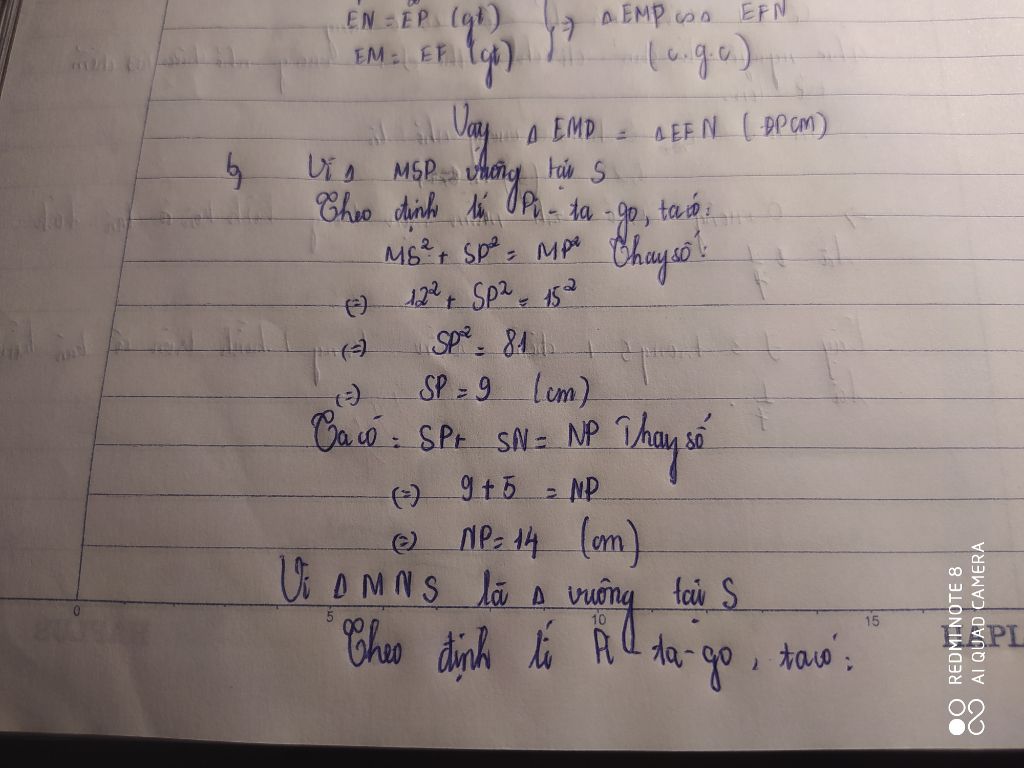 EN = EP (gt) } => Δ EMP = Δ EFN
EM = EF (gt) (c.g.c)
Vậy Δ EMP = Δ EFN (ĐPCM)
b, Vì Δ MSP vuông tại S
Theo định lí Pi-ta-go, ta có:
MS² + SP² = MP² Thay số:
(=) 12² + SP² = 15²
(=) SP² = 81
(=) SP = 9 (cm)
Ta có: SP + SN = NP Thay số
(=) 9 + 5 = NP
(=) NP = 14 (cm)
Vì Δ MNS là Δ vuông tại S
0 5 10 15
Theo định lí Pi-ta-go, ta có:
HAPL
REDMI NOTE 8
AI QUAD CAMERA